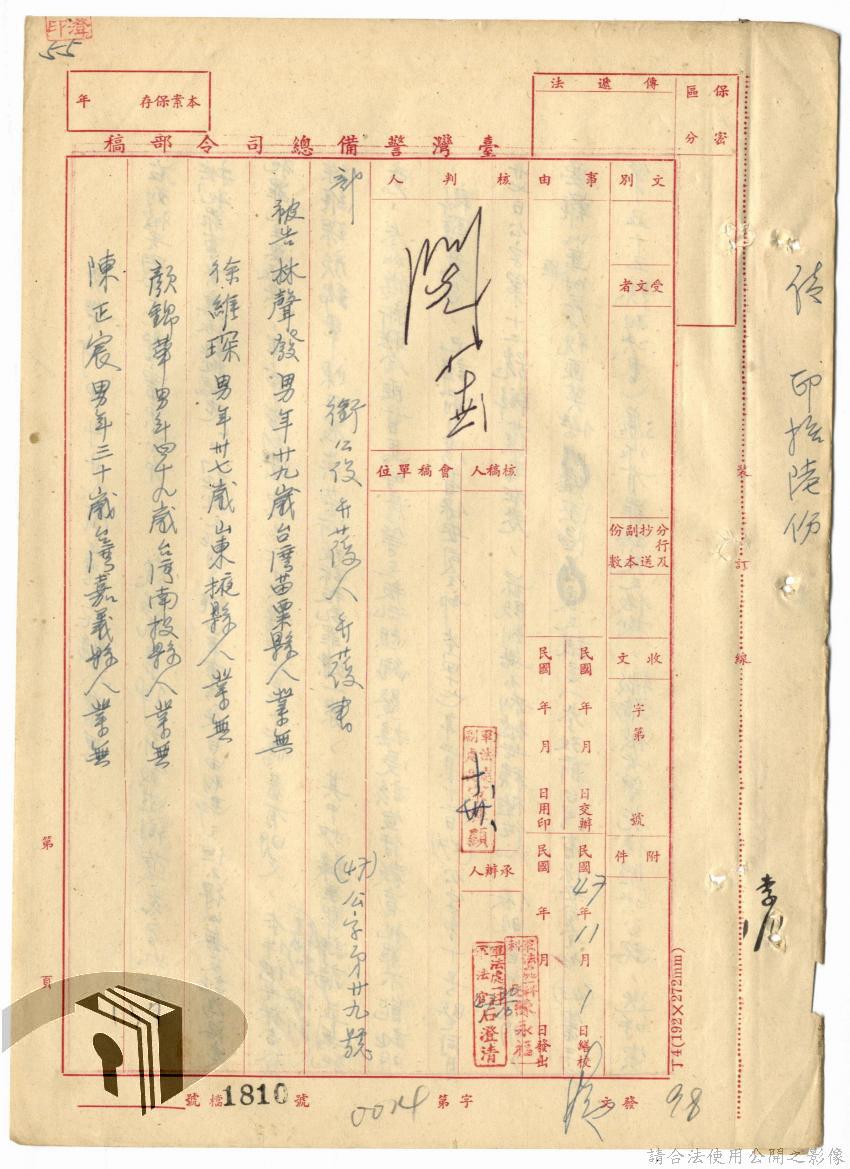 保密
區分
傳遞法
本案保存 年
55
臺灣警備總司令部稿
文別
受文者
分行及抄送副本份數
收文
字第 號
附件
事由
民國 年 月 日交辦
民國47年11月1日繕校
民國 年 月 日用印
民國 年 月 日發出
核判人
核稿人
會稿單位
承辦人
軍法官石澄清
被告林聲發男年廿九歲台灣苗栗縣人業無
徐維琛男年卅七歲山東掖縣人業無
顏錦華男年四十九歲台灣南投縣人業無
陳正宸男年三十歲台灣嘉義縣人業無
(47)公字第廿九號
印拾陸份
裝
訂
線
丁4(192×272mm)
第 頁
檔號1810號
字第
發文
98
請合法使用公開之影像